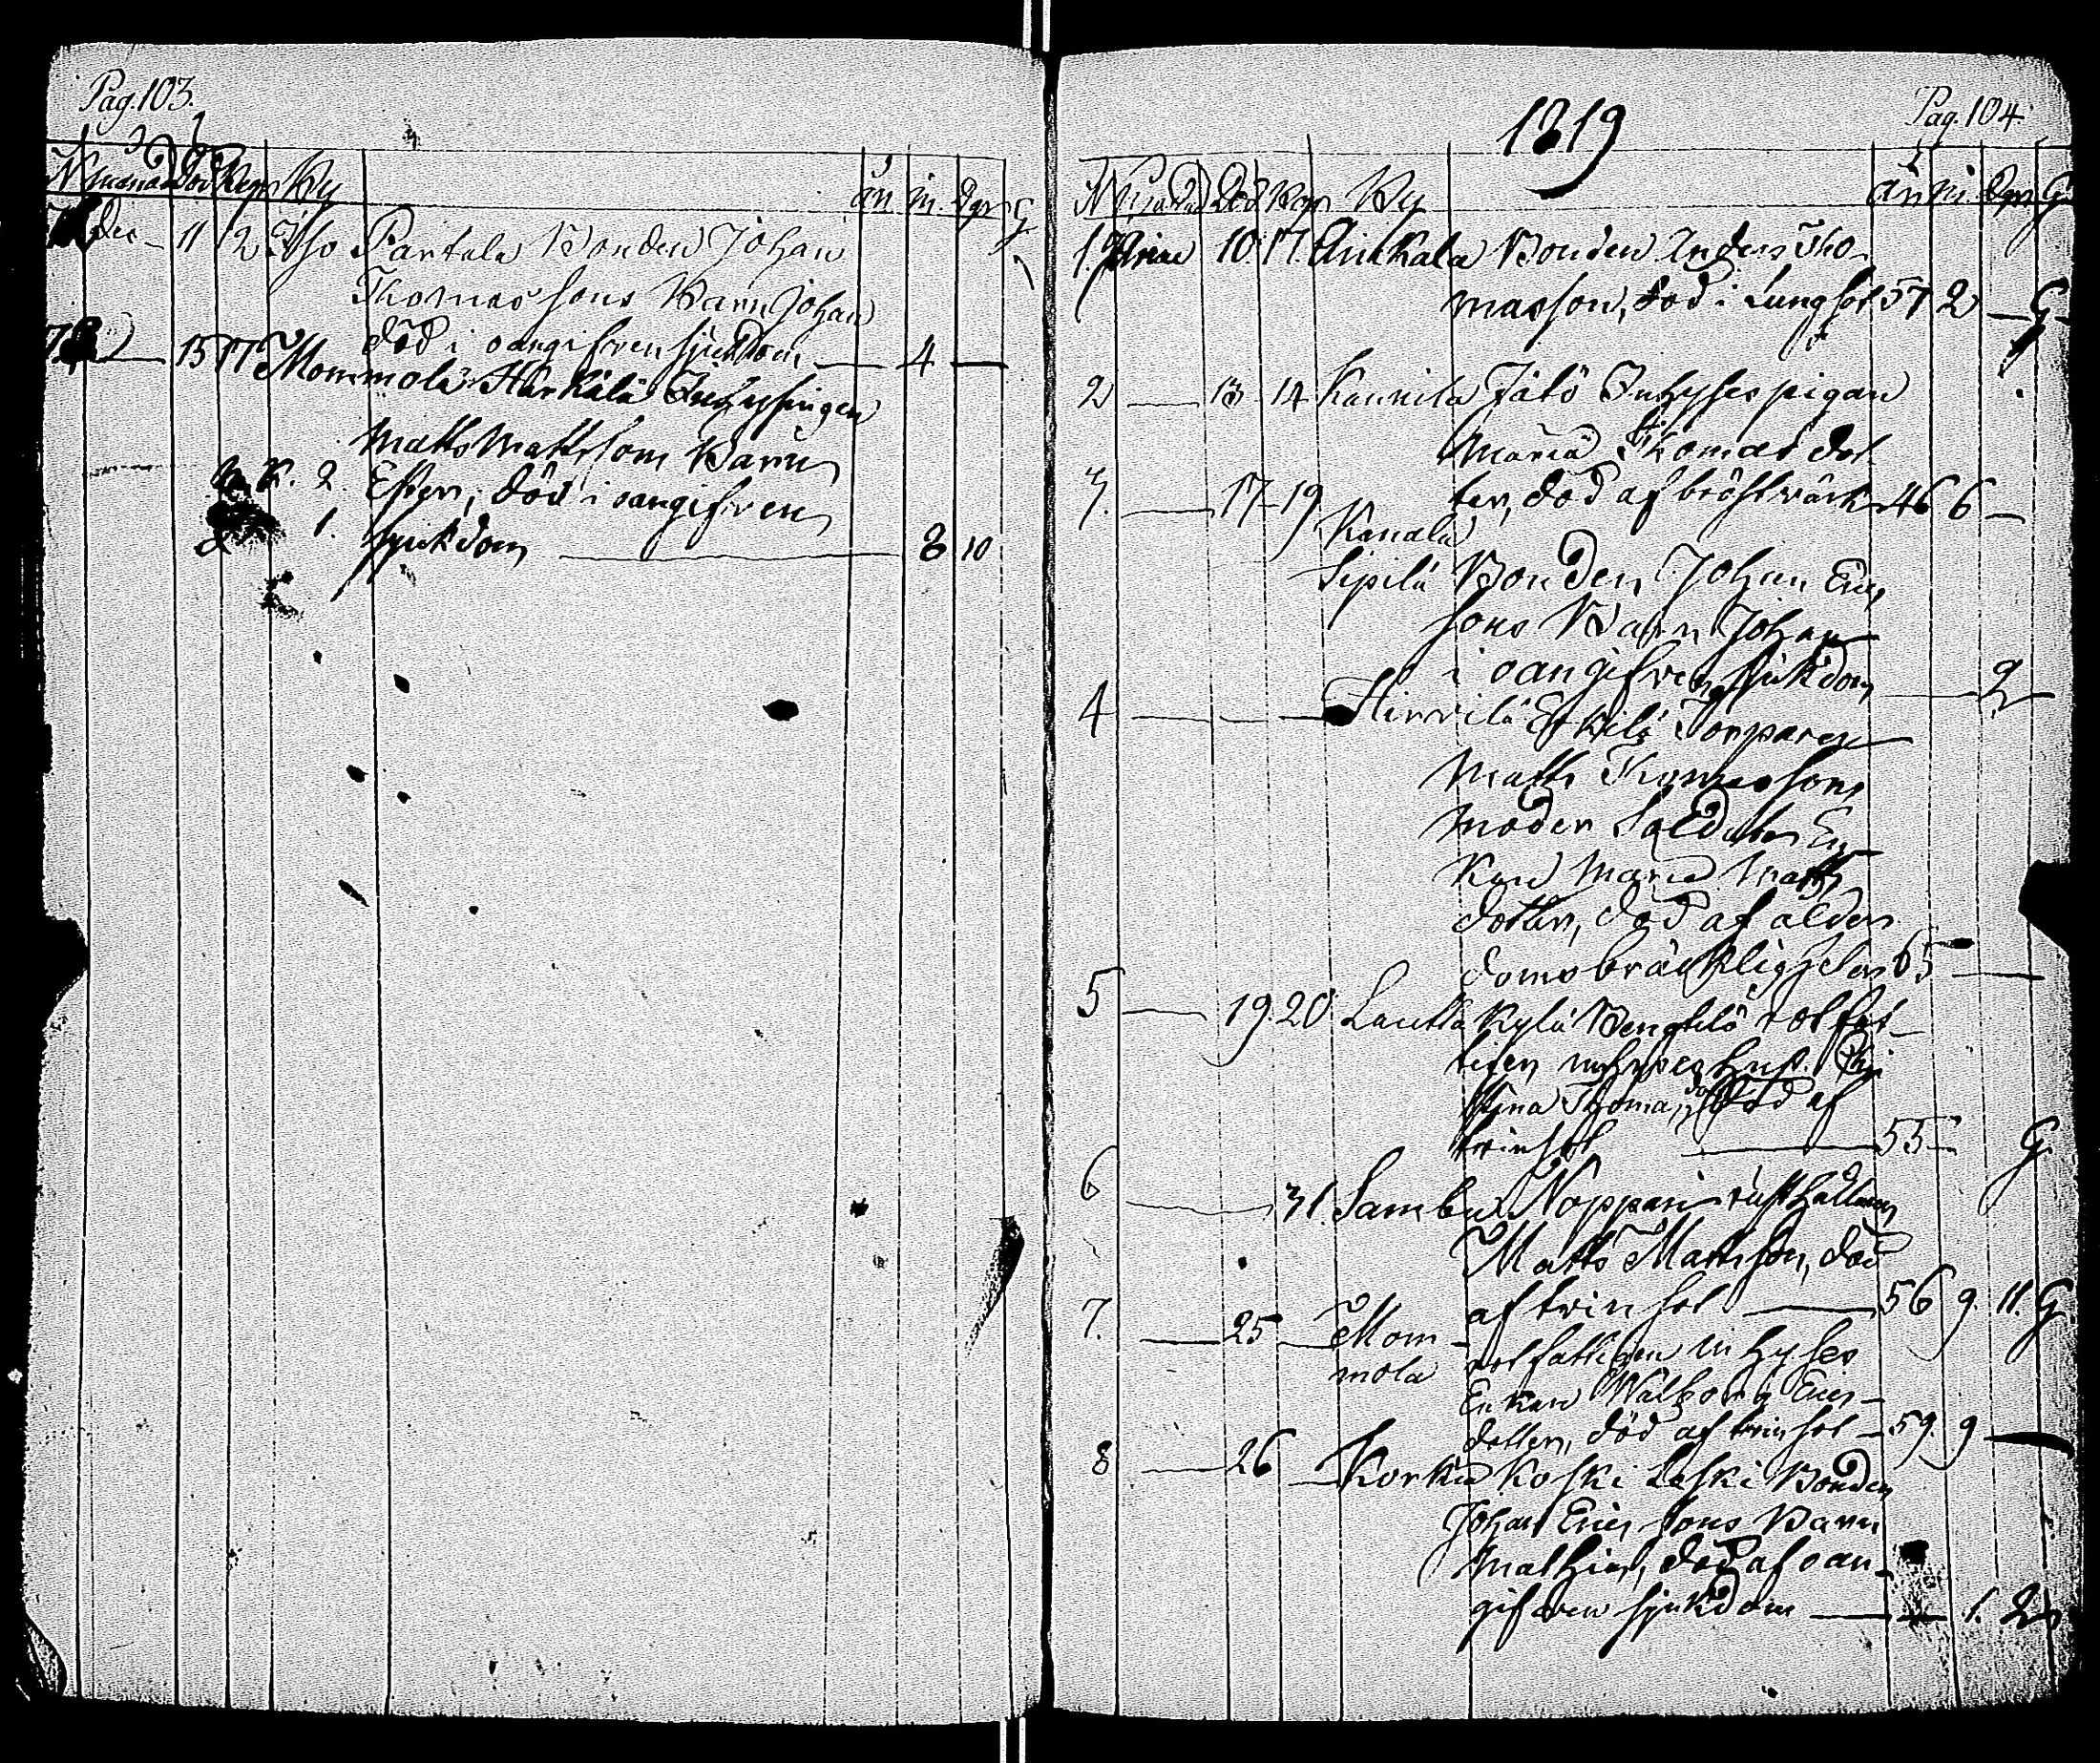 Pag. 103.
N månad död begr By år m. dgr G
dec 11 2 Iso Partala Bonden Johan
Thomas sons Barn Johan
död i oangifven sjukdom — 4 —
15 17 Mommola Härkälä Inhysingen
Matts Mattssons Barn
M. K. 2. Ester, död i oangifven
1. sjukdom — 8 10
Pag. 104.
1819
N månad död begr By år m. dgr G
1. 10 17 Anikala Bonden Anders Tho-
masson, död i Lungsot 57 2 — G
2 — 13 14 Kannila Jälö Inhyses pigan
Maria Thomas dot-
3. — 17 19 ter, död af bröstvärk 46 6 —
Kanala
Sipilä Bonden Johan Erics
sons Barn Johan
i oangifven sjukdom — 2 —
4 — — — Hirvilä Eskilä Torparen
Matts Thomassons
moder Soldats En-
kan Maria Matts
dotter, död af ålder
doms bräcklighet 65 —
5 — 19. 20 Lautta Kylä Bengtilä rotfat-
tigen inhyses hust. Chri
stina Thomasdotter död af
trinsot — 55 — G.
6 — 31. Sambu Noppari rusthållaren
Matts Mattsson, död
af trinsot — 56 9. 11. G
7. — 25 — Mom-
mola rotfattigen inhyses
Enkan Walborg Erics-
dotter, död af trinsot — 59. 9 —
8 — 26 — Korkia Koski Laski Bonden
Johan Erics sons Barn
Mathias, död af oan-
gifven sjukdom — — 1. 2